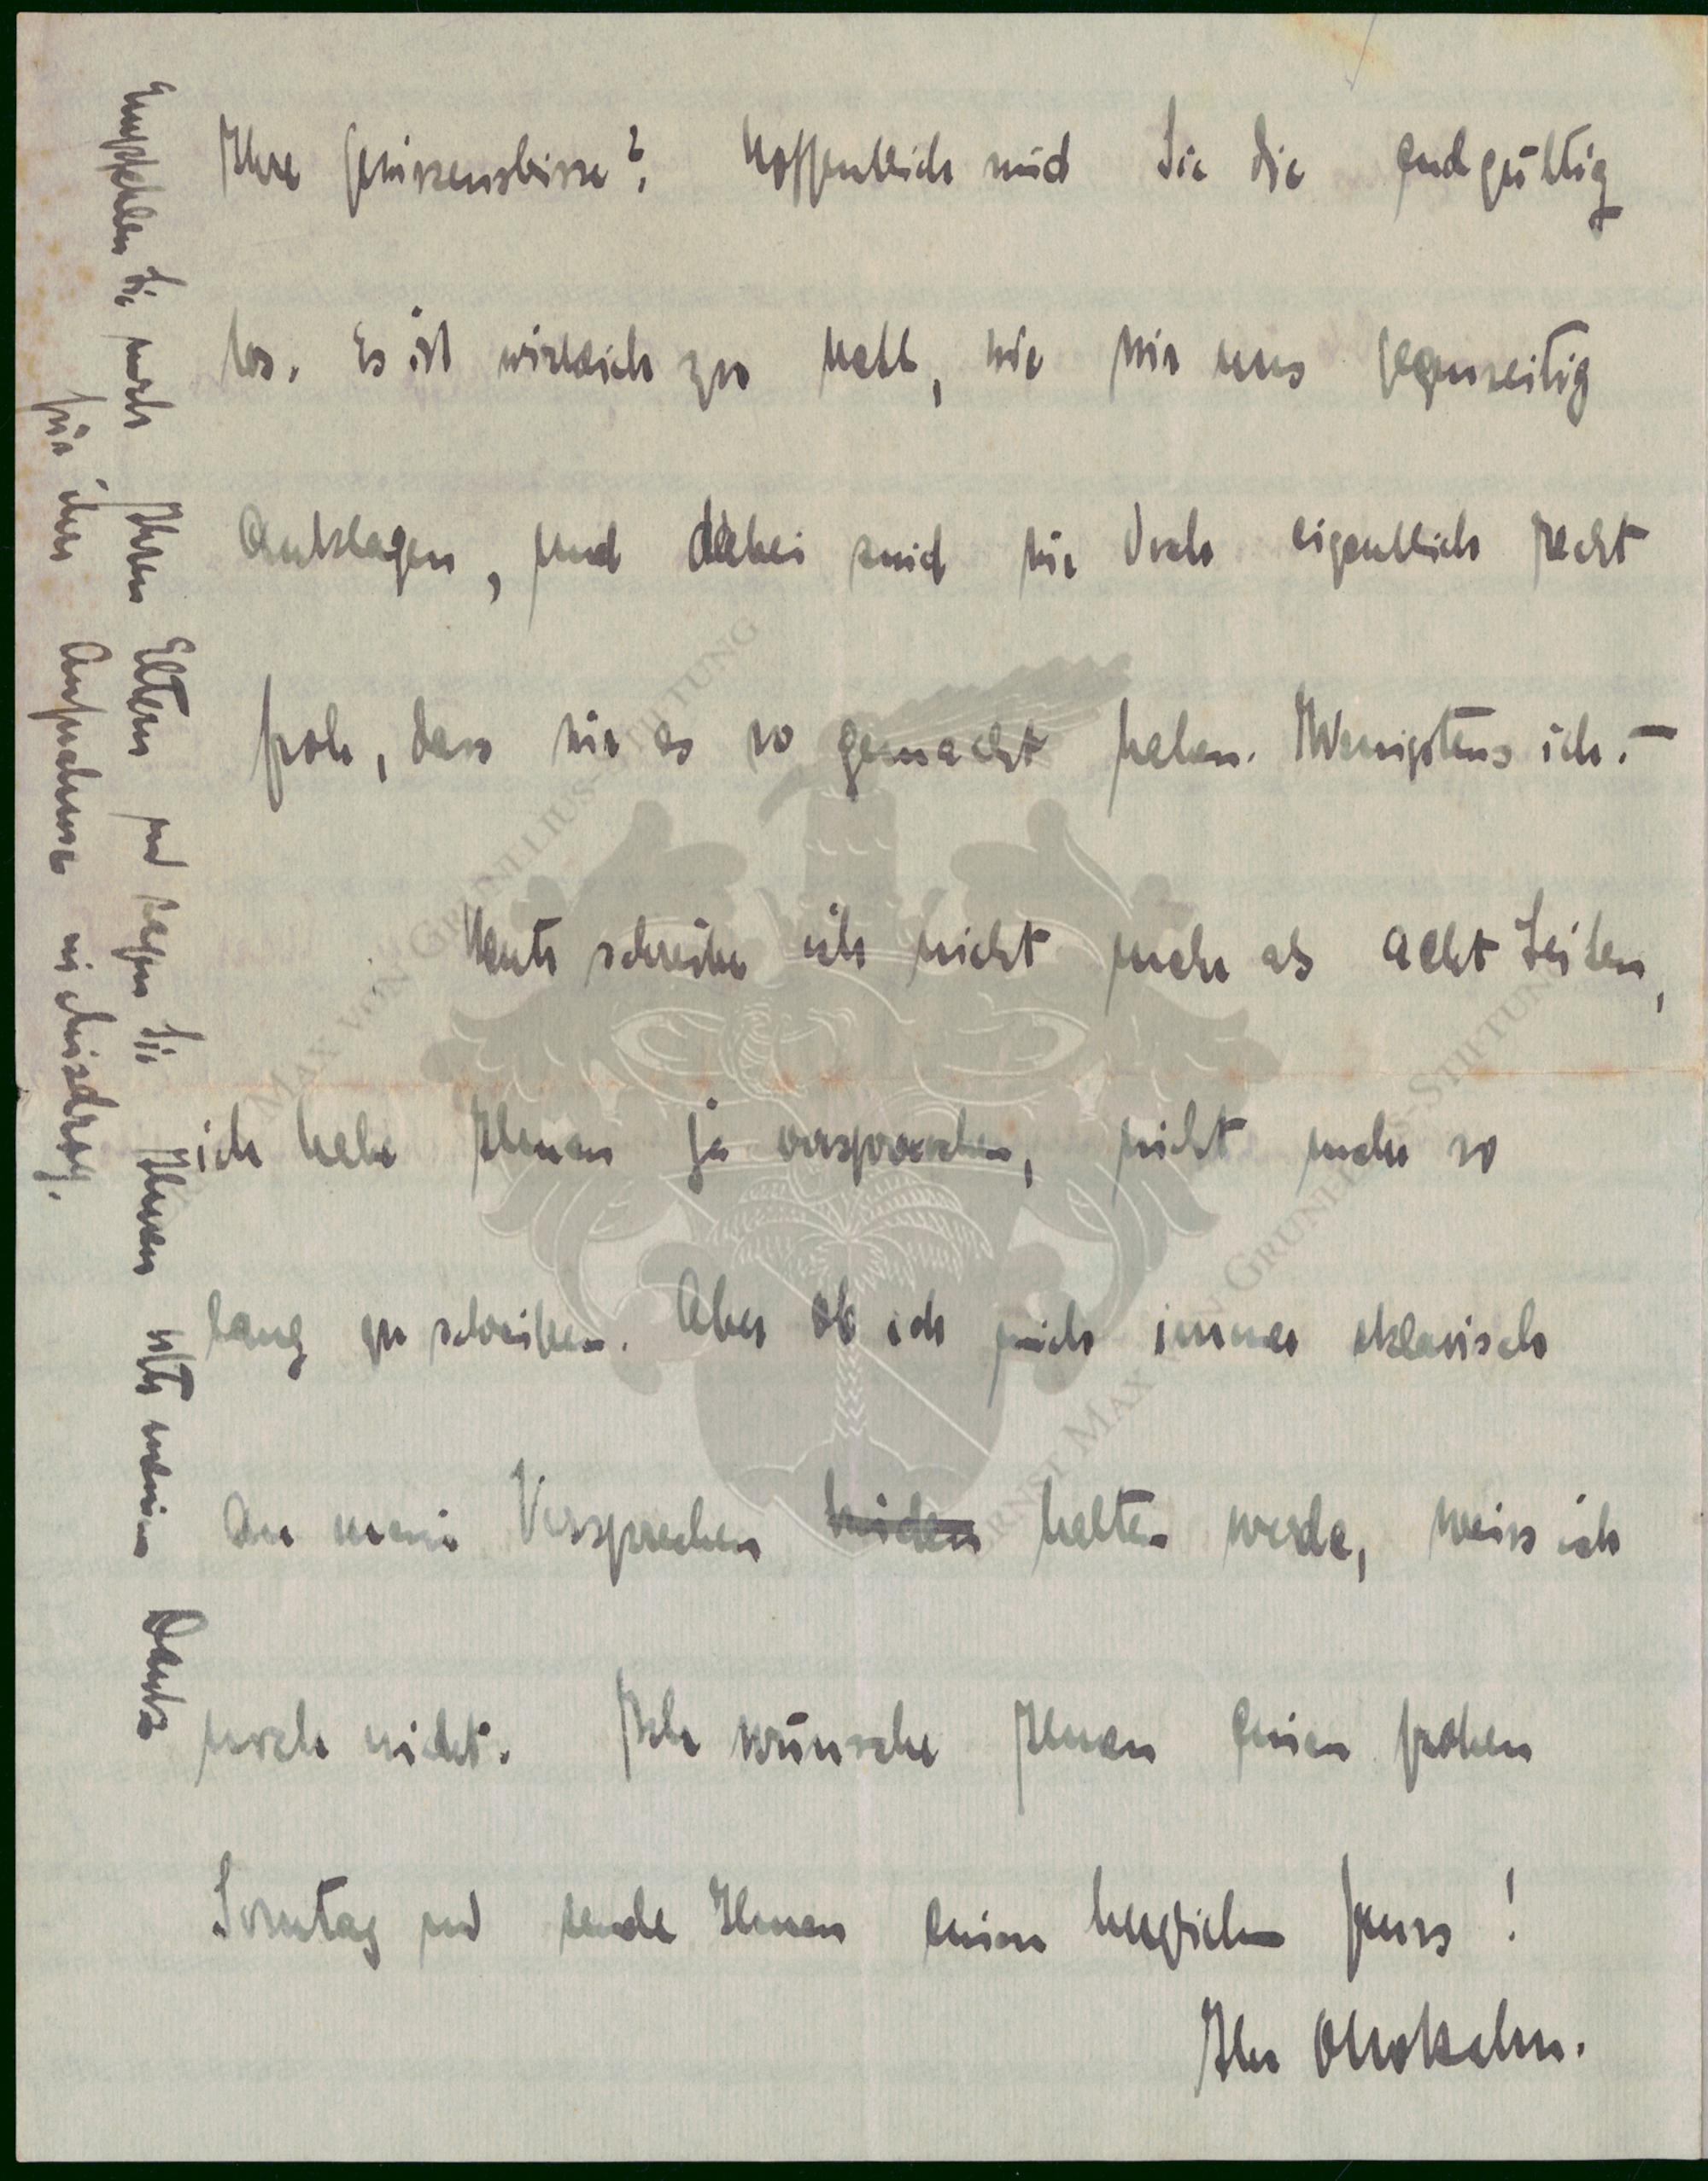 Ihre Gewissensbisse? Hoffentlich sind Sie die endgültig
los. Es ist wirklich zu nett, wie wir uns gegenseitig
Anklagen, und dabei sind wir doch eigentlich recht
froh, dass wir es so gemacht haben. Wenigstens ich. –
Heute schreibe ich nicht mehr als acht Seiten,
ich habe Ihnen ja versprochen, nicht mehr so
lang zu schreiben. Aber ob ich mich immer sklavisch
an mein Versprechen halten werde, weiss ich
noch nicht. Ich wünsche Ihnen einen frohen
Sonntag und sende Ihnen einen herzlichen Gruss!
Ihr Otto Kahn.
Empfehlen Sie mich Ihren Eltern und sagen Sie Ihnen meinen Dank
für ihre Aufnahme
ERNST MAX VON GRUNELIUS-STIFTUNG
ERNST MAX VON GRUNELIUS-STIFTUNG